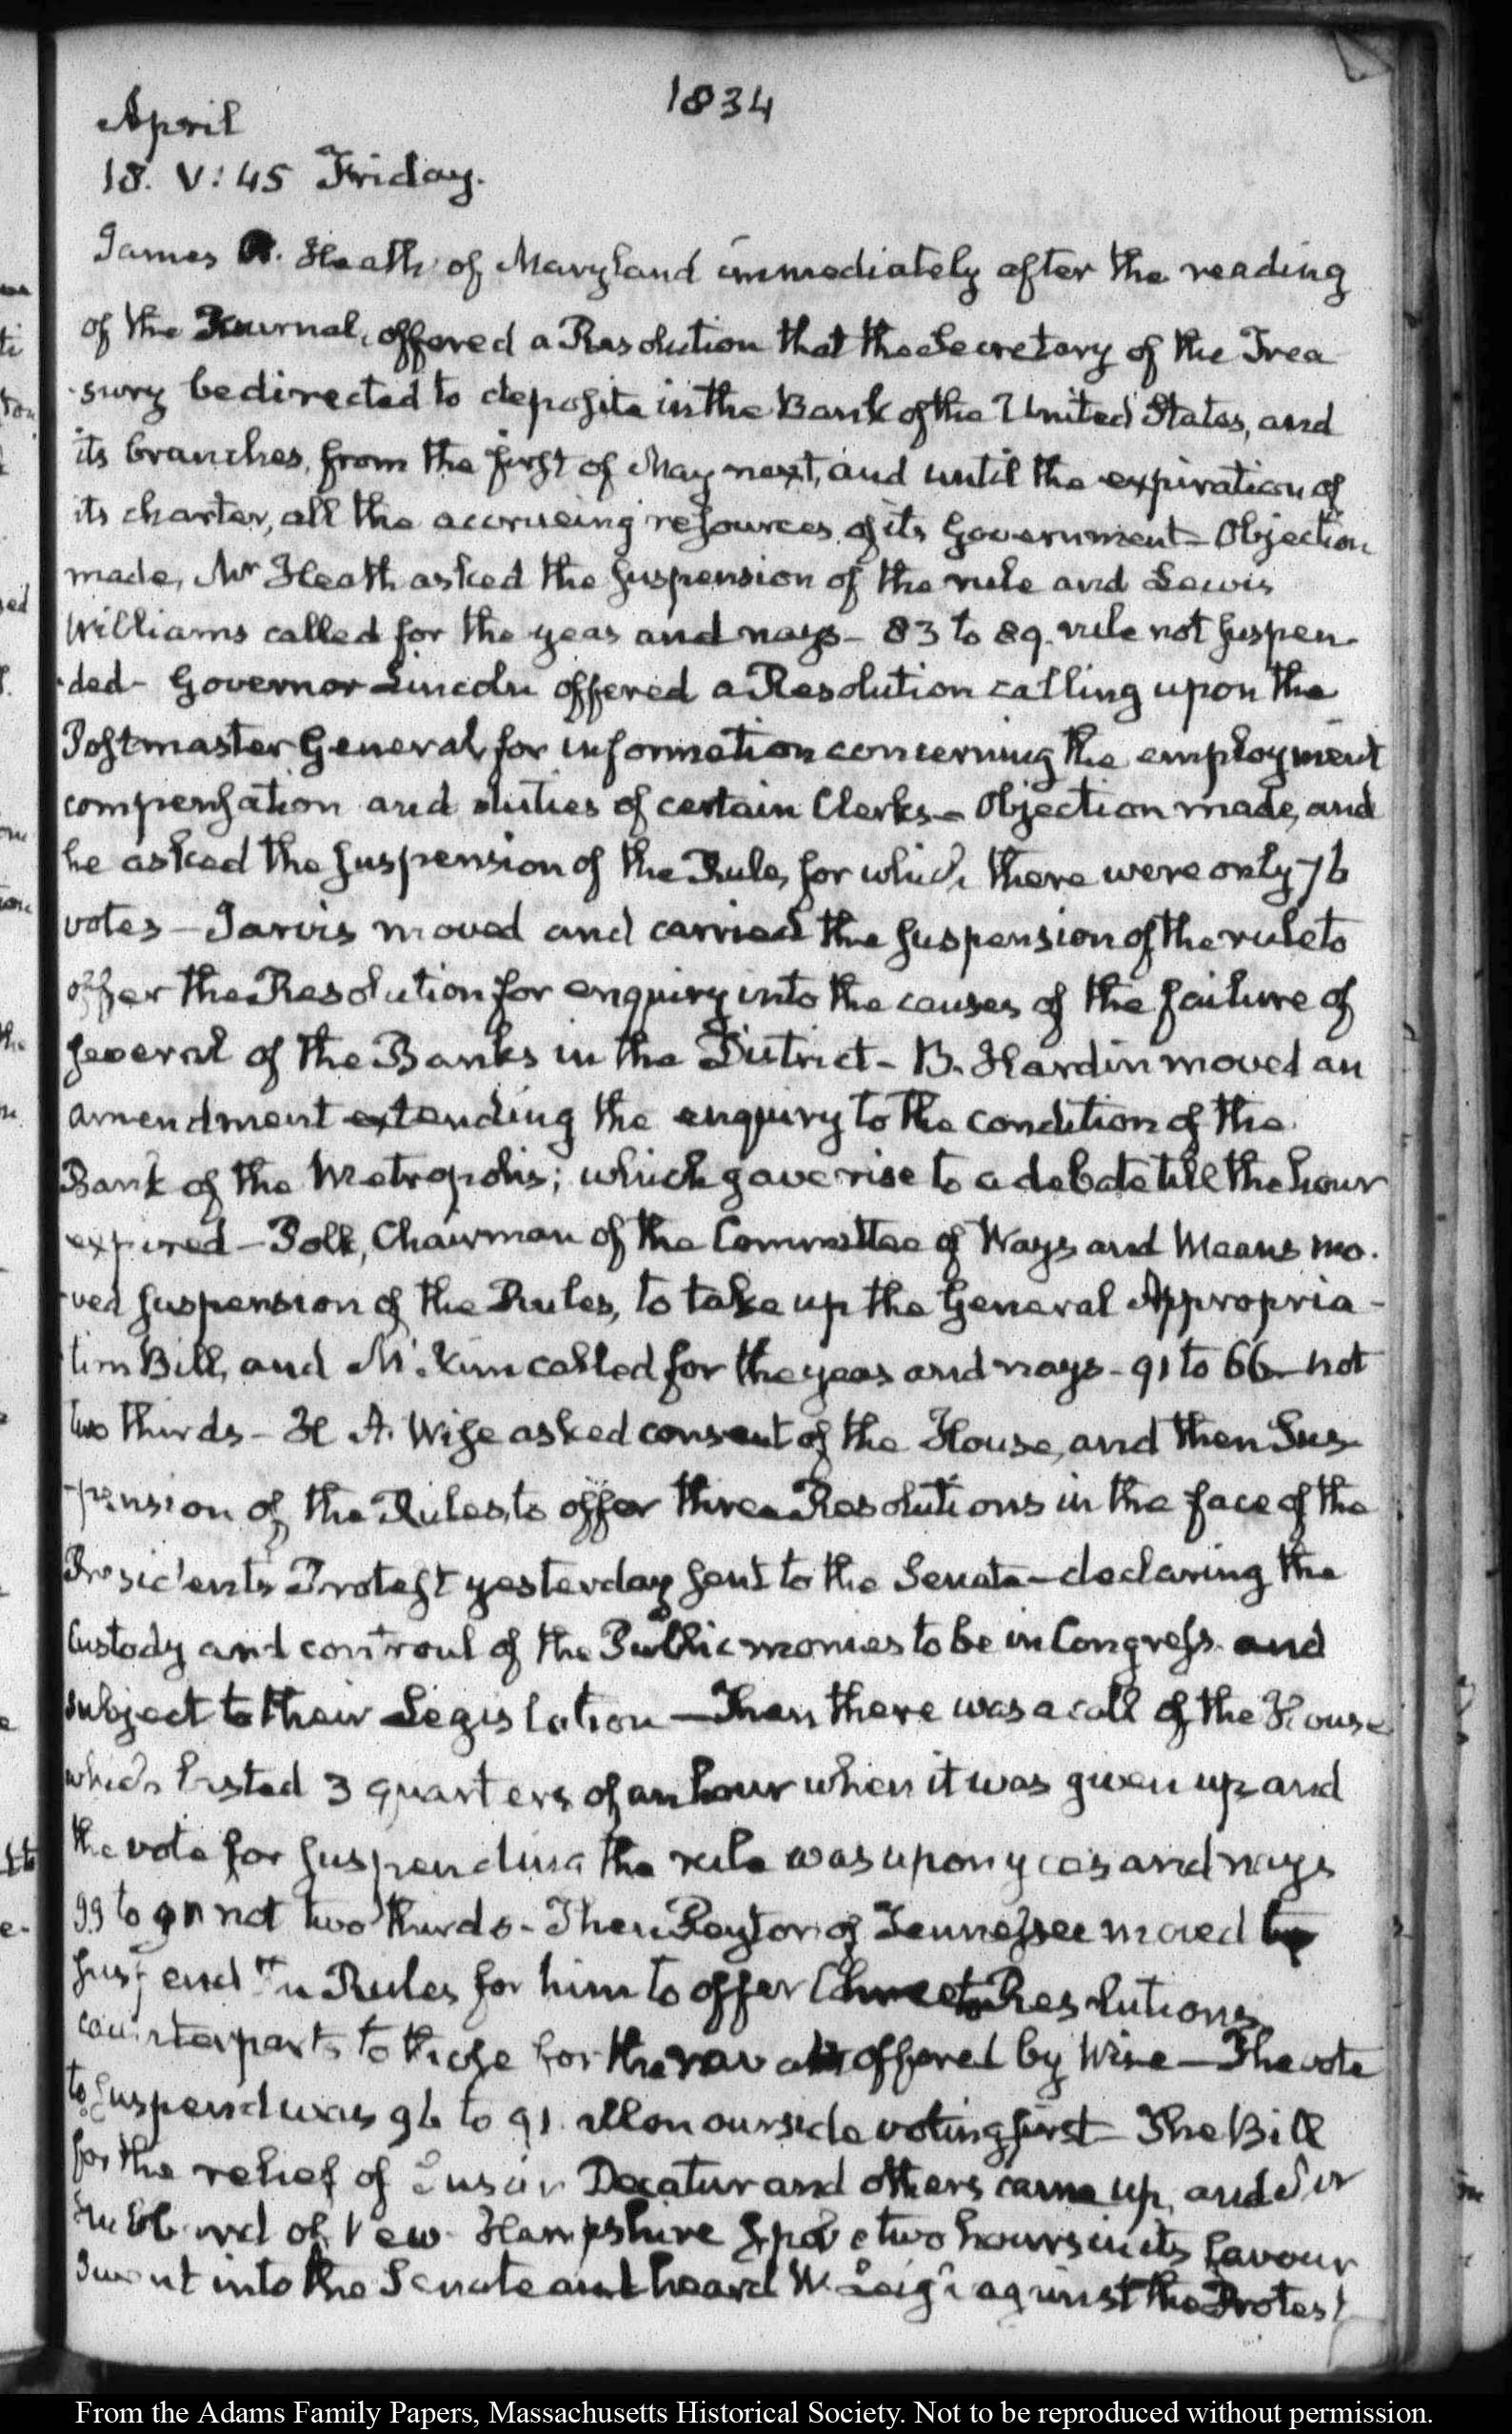 1834
April
18. V: 45 Friday.
James . Heath of Maryland immediately after the reading
of the Journal, offered a Resolution that the Secretary of the Trea
-sury be directed to deposite in the Bank of the United States, and
its branches, from the first of May next, and until the expiration of
its charter, all the accrueing resources of its Government - Objection
made, Mr Heath asked the suspension of the rule and Lewis
Williams called for the yeas and nays - 83 to 89. rule not suspen-
-ded - Governor Lincoln offered a Resolution calling upon the
Postmaster General for information concerning the employment
compensation and duties of certain Clerks - Objection made, and
he asked the suspension of the Rule, for which there were only 76
votes - Jarvis moved and carried the suspension of the rule to
offer the Resolution for enquiry into the causes of the failure of
several of the Banks in the District - B. Hardin moved an
amendment extending the enquiry to the condition of the
Bank of the Metropolis; which gave rise to a debate till the hour
expired - Polk, Chairman of the Committee of Ways and Means mo-
-ved suspension of the Rules, to take up the General Appropria-
tion Bill, and McKim called for the yeas and nays - 91 to 66 - not
two thirds - H. A. Wise asked consent of the House, and then Sus-
-pension of the Rules, to offer three Resolutions in the face of the
Presidents Protest yesterday sent to the Senate - declaring the
custody and controul of the Public monies to be in Congress and
subject to their Legislation - Then there was a call of the House
which lasted 3 quarters of an hour when it was given up and
the vote for suspending the rule was upon yeas and nays
99 to not two thirds - Then Peyton of Tennessee moved to
suspend the Rules for him to offer Resolutions
counterparts to those offered by Wise - The vote
to suspend was 96 to 91. all on our side voting first - The Bill
for the relief of Susan Decatur and others came up, and
Hubbard of New-Hampshire spoke two hours in its favour
I went into the Senate and heard W. Leigh against the Protest
From the Adams Family Papers, Massachusetts Historical Society. Not to be reproduced without permission.